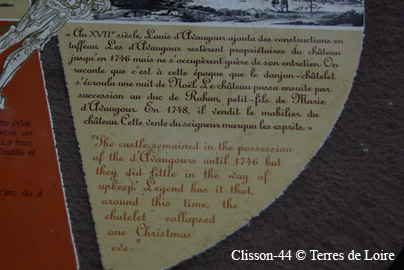 « Au XVIIᵉ siècle, Louis d'Avaugour ajouta des constructions en
tuffeau. Les d'Avaugour restèrent propriétaires du château
jusqu'en 1746 mais ne s'occupèrent guère de son entretien. On
raconte que c'est à cette époque que le donjon-châtelet
s'écroula une nuit de Noël. Le château passa ensuite par
succession au duc de Rohan, petit-fils de Marie
d'Avaugour. En 1748, il vendit le mobilier du
château. Cette vente du seigneur marqua les esprits. »
"The castle remained in the possession
of the d'Avaugours until 1746 but
they did little in the way of
upkeep. Legend has it that,
around this time, the
chatelet collapsed
one Christmas
eve."
un
La tour,
Castille et
l'arc ou à
Clisson-44 © Terres de Loire